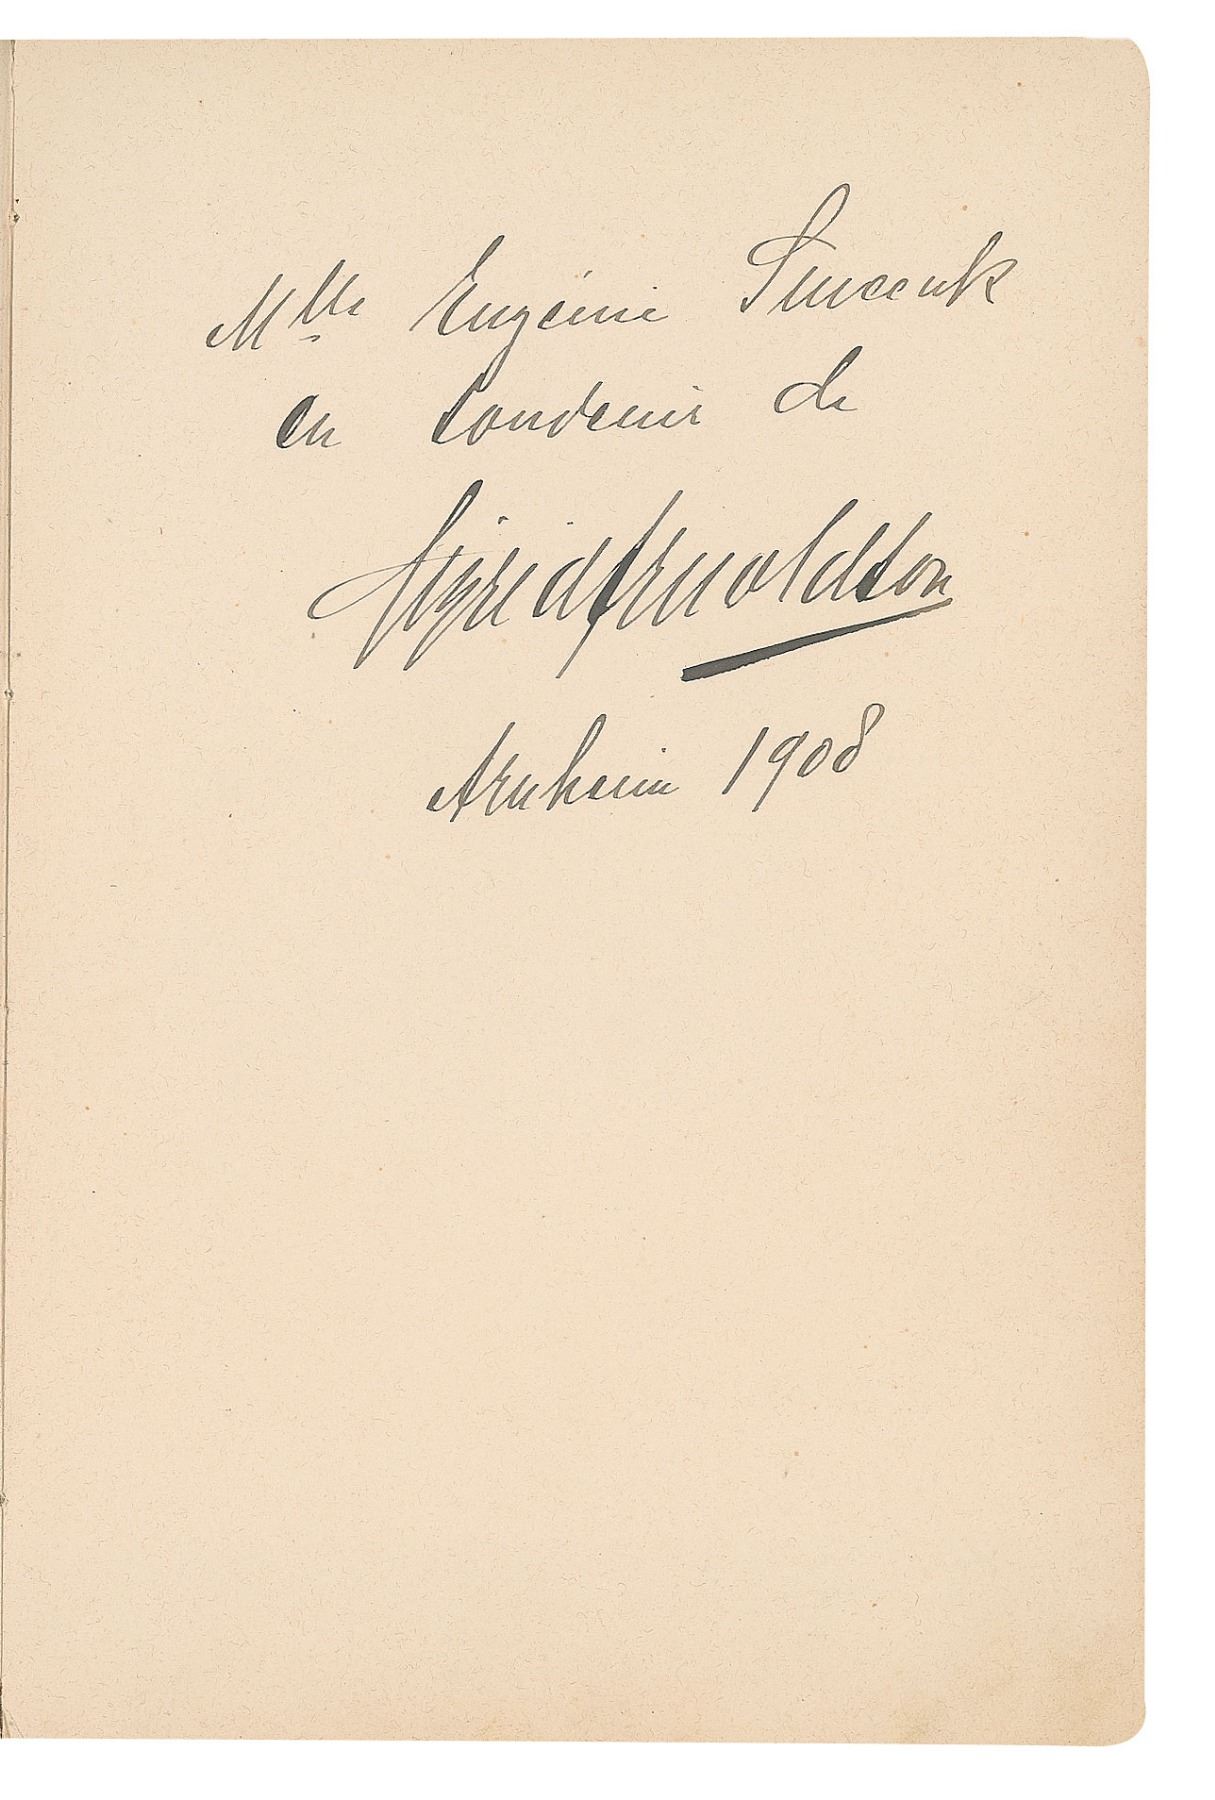 Mlle Eugénie Smeenk
en souvenir de
Sigrid Arnoldson
Arnheim 1908